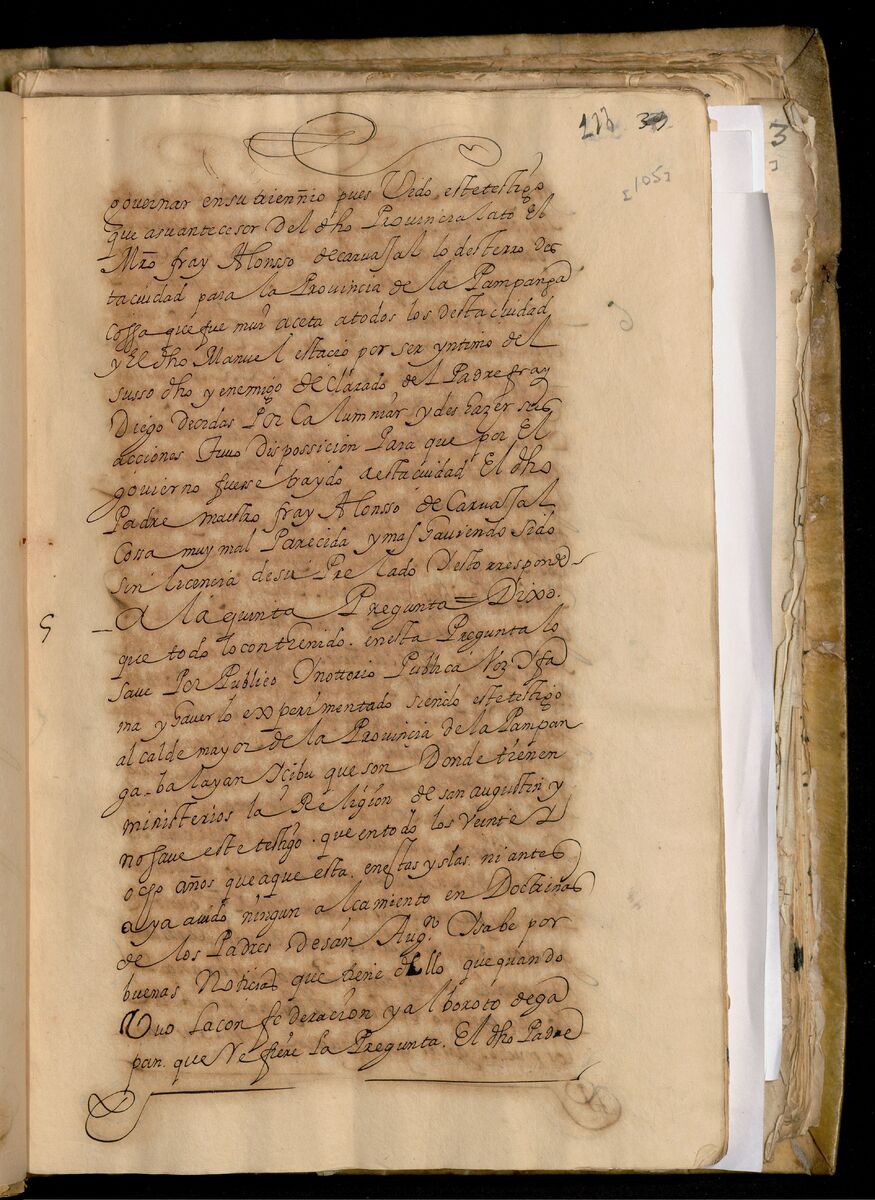 113 39
[105]
governar en su trienñio pues Vido este testigo
que a su antecesor Del dho Provincialato El
Mro fray Alonso de carvaJal lo desterro des
ta ciudad para la Provincia de la Pampanga
cossa que fue muy aceta a todos los desta ciudad
y El dho Manuel estacio por ser yntimo del
susso dho y enemigo de Clarado del Padre fray
Diego de ordas Por Calumniar y des hazer sus
acciones Tuvo Dispossicion Para que por El
govierno fuesse traydo a esta ciudad El dho
Padre maestro fray Alonsso de CarvaJal
Cossa muy mal Parecida y mas haviendo sido
sin licencia de su Prelado Y esto rresponde
5 A la quinta Pregunta = Dixo.
que todo lo contenido. en esta Pregunta lo
save Por Publico Y nottorio Publica Voz Y fa
ma y haver lo experimentado siendo este testigo
alcalde mayor de la Provincia de la Pampan
ga - balayan Y cibu que son Donde tienen
ministerios la Religion de san augustin y
no save este testigo. que en todo los veinte Y
ocho años que a que esta. en estas yslas. ni antes
aya avido ningun alcamiento en Doctrinas
de los Padres De san Augn. Y sabe por
buenas Noticias que tiene dello que quando
Vuo La confederacion y alboroto de ga
pan. que Refiere La Pregunta. El dho Padre